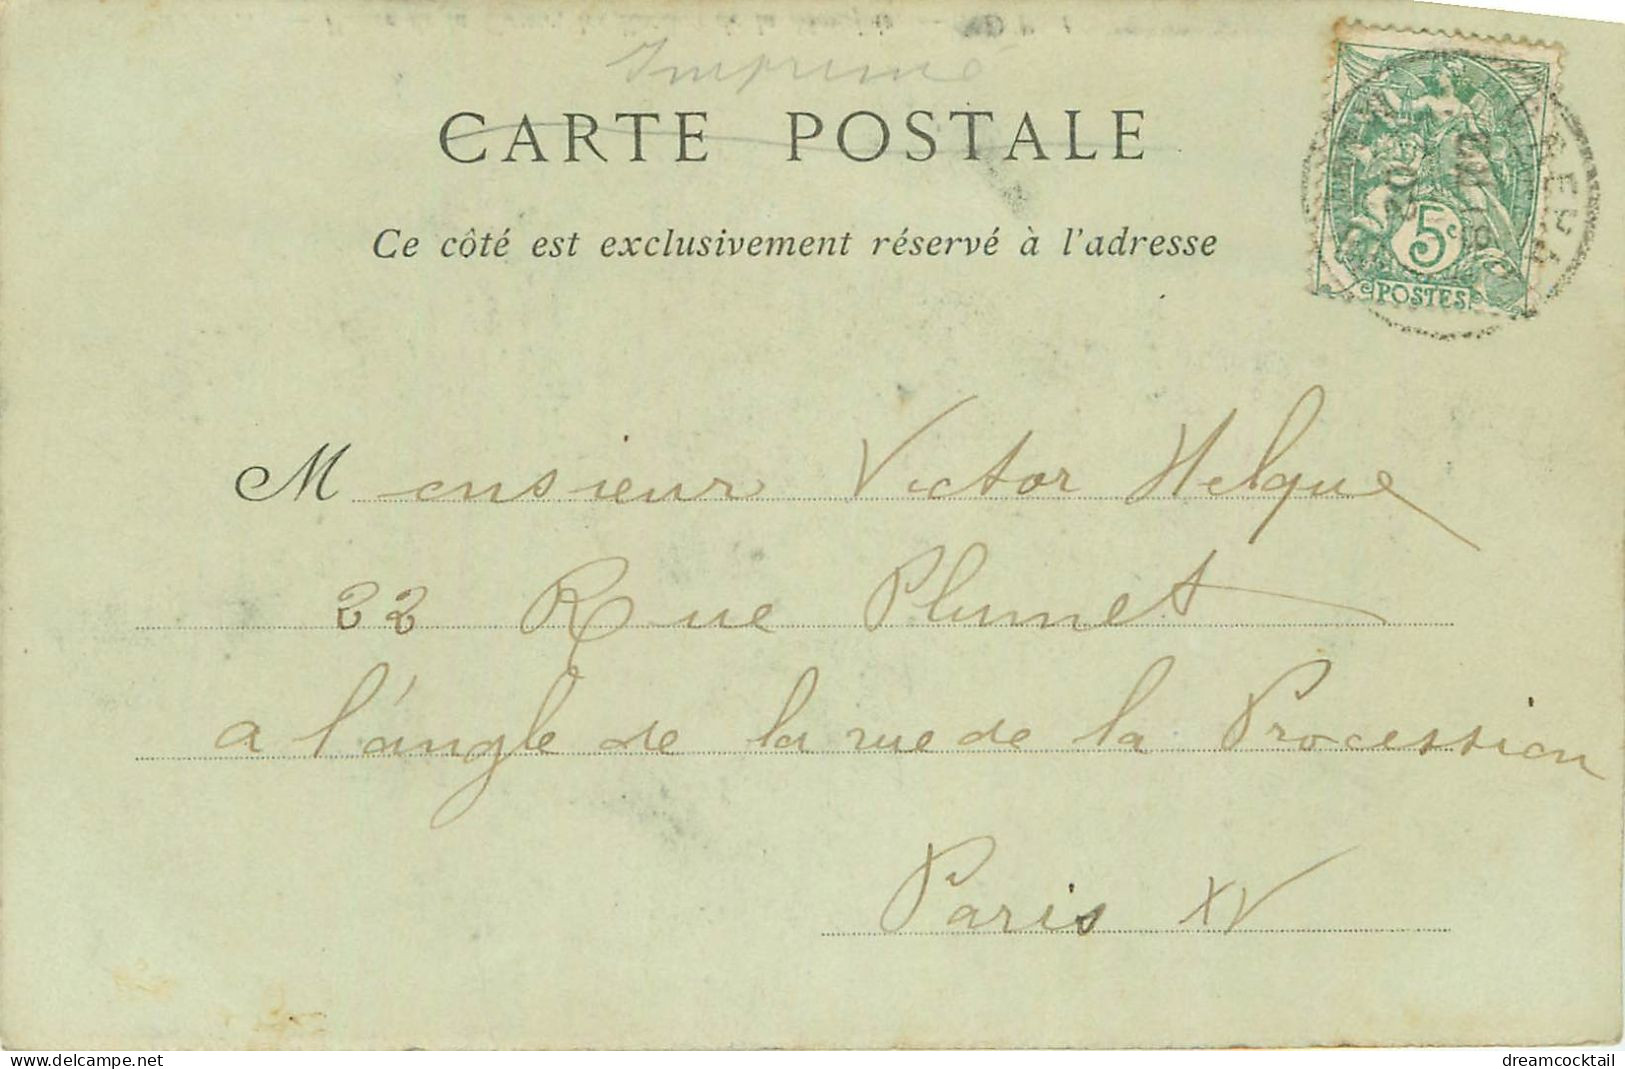 Imprimé
CARTE POSTALE
Ce côté est exclusivement réservé à l'adresse
5c
POSTES
20
Monsieur Victor Helque
22 Rue Plumet
a l'angle de la rue de la Procession
Paris XV
www.delcampe.net
dreamcocktail